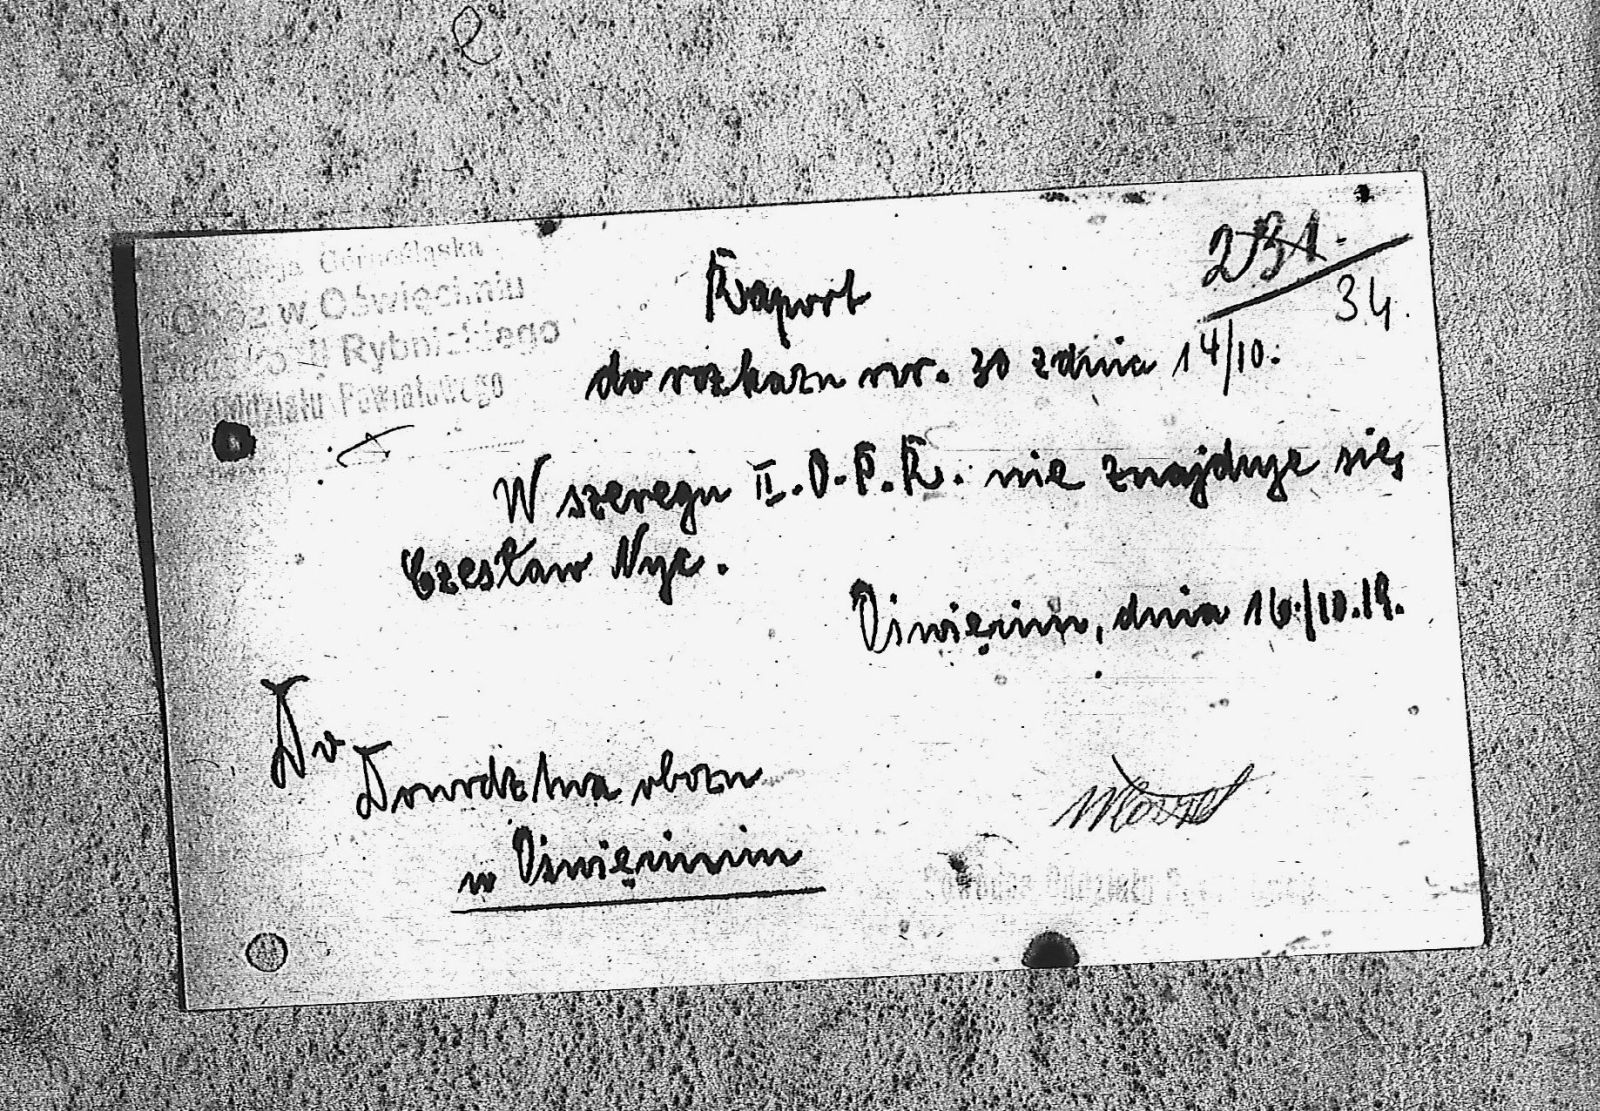 e
Górnośląska
Obóz w Oświęcimiu
Rybnickiego
Oddziału Powiatowego
231.
34.
Raport
do rozkazu nr. 30 z dnia 14/10.
W szeregu II. O. P. R. nie znajduje się
Czesław Nyc.
Oświęcim, dnia 16./10.19.
Do
Dowództwa obozu
w Oświęcimiu